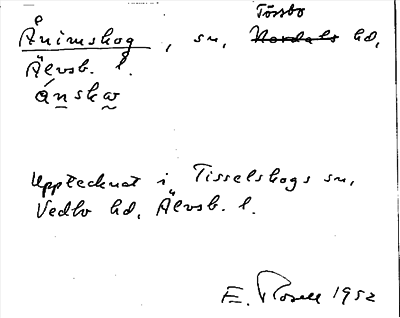 Tössbo
Ånimskog, sn, Nordals hd,
Älvsb. l.
ánskω
Upptecknat i Tisselskogs sn,
Vedbo hd, Älvsb. l.
E. Rosell 1952